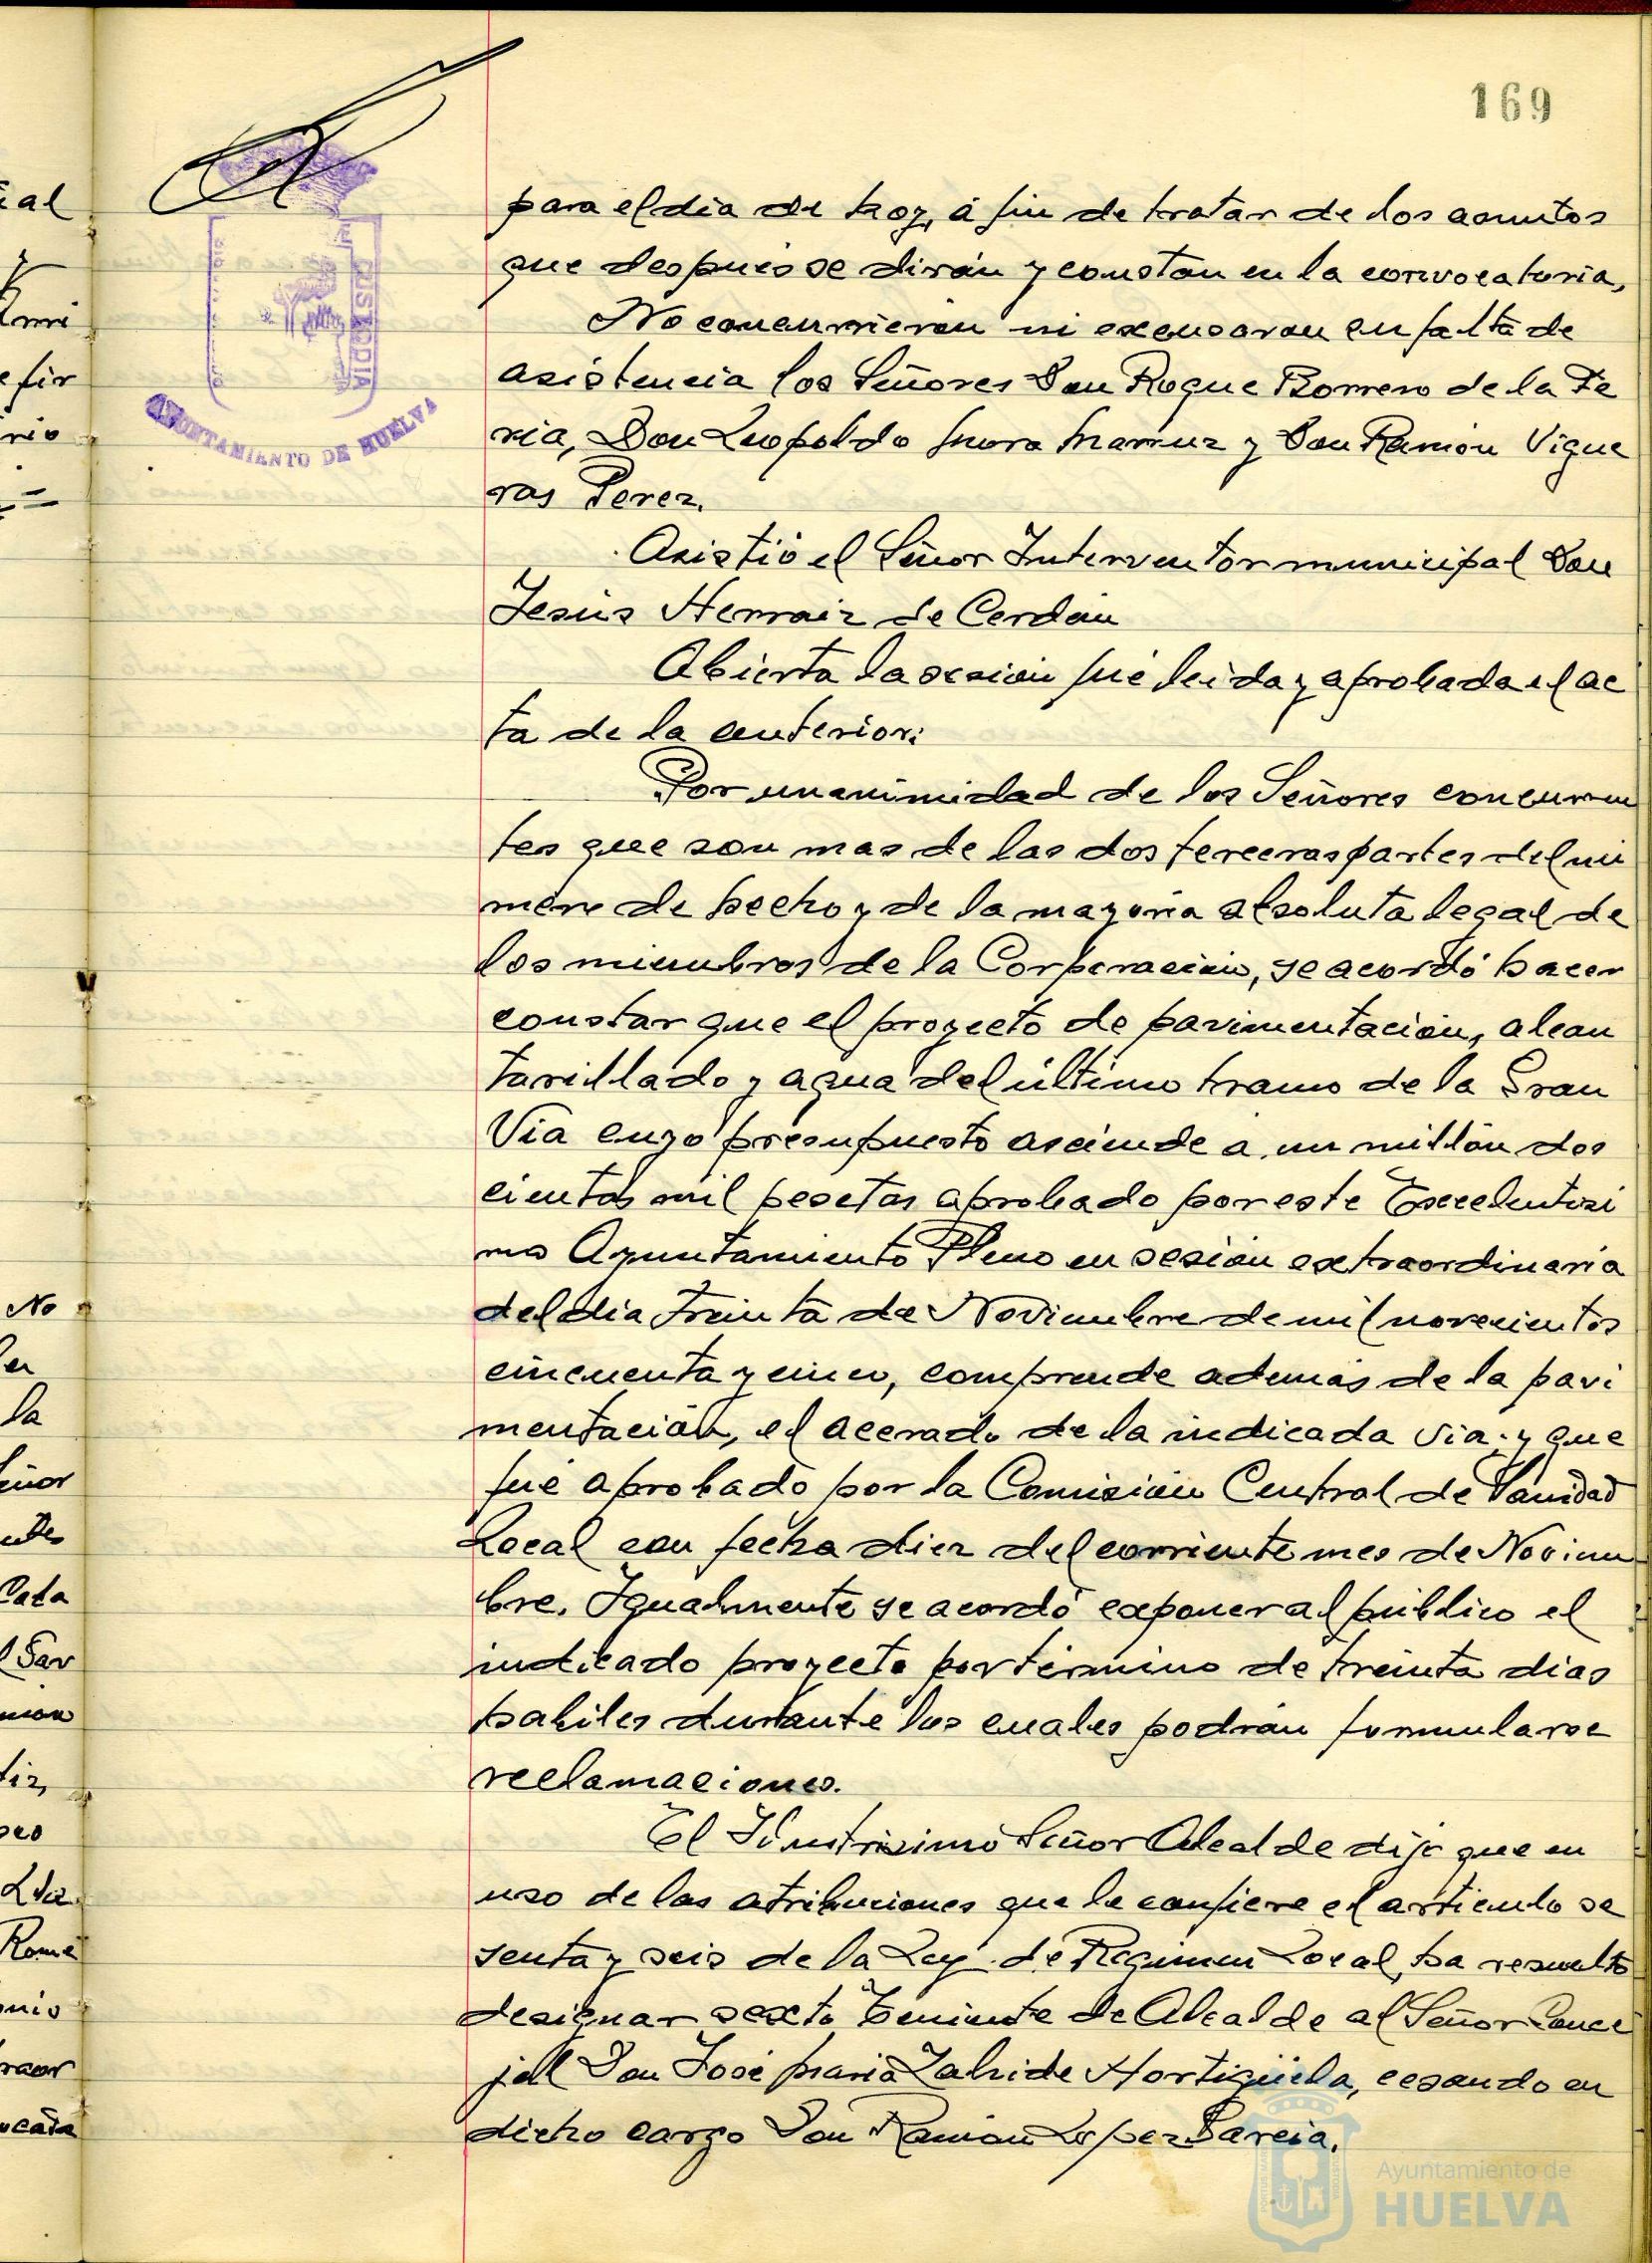 169
para el dia de hoy, á fin de tratar de los asuntos
que despues se dirán y constan en la convocatoria,
No concurrieron ni excusaron su falta de
asistencia los Señores Don Roque Borrero de la Fe
ria, Don Leopoldo Mora y Don Ramón Vigue
ras Perez.
Asistió el Señor Interventor municipal Don
Jesús Herraiz de Cerdán
Abierta la sesión fué leida y aprobada el ac
ta de la anterior:
Por unanimidad de los Señores concurren
tes que son mas de las dos terceras partes del nú
mero de hecho y de la mayoria absoluta legal de
los miembros de la Corporación, se acordó hacer
constar que el proyecto de pavimentación, alcan
tarillado y agua del último tramo de la Gran
Via cuyo presupuesto asciende a un millón dos
cientas mil pesetas aprobado por este Excelentisi
mo Ayuntamiento Pleno en sesión extraordinaria
del dia treinta de Noviembre de mil novecientos
cincuenta y cinco, comprende además de la pavi
mentación, el acerado de la indicada via; y que
fué aprobado por la Comisión Central de Sanidad
Local con fecha diez del corriente mes de Noviem
bre. Igualmente se acordó exponer al público el
indicado proyecto por término de treinta dias
habiles durante los cuales podrán formularse
reclamaciones.
El Ilustrisimo Señor Alcalde dijo que en
uso de las atribuciones que le confiere el articulo se
senta y seis de la Ley de Regimen Local, ha resuelto
designar sexto Teniente de Alcalde al Señor Conce
jal Don José Maria Zalvide Hortigüela, cesando en
dicho cargo Don Ramón Lopez Garcia.
CUSTODIA
AYUNTAMIENTO DE HUELVA
Ayuntamiento de
HUELVA
ial
e fir
rio
No
la
eñor
Cada
Rome